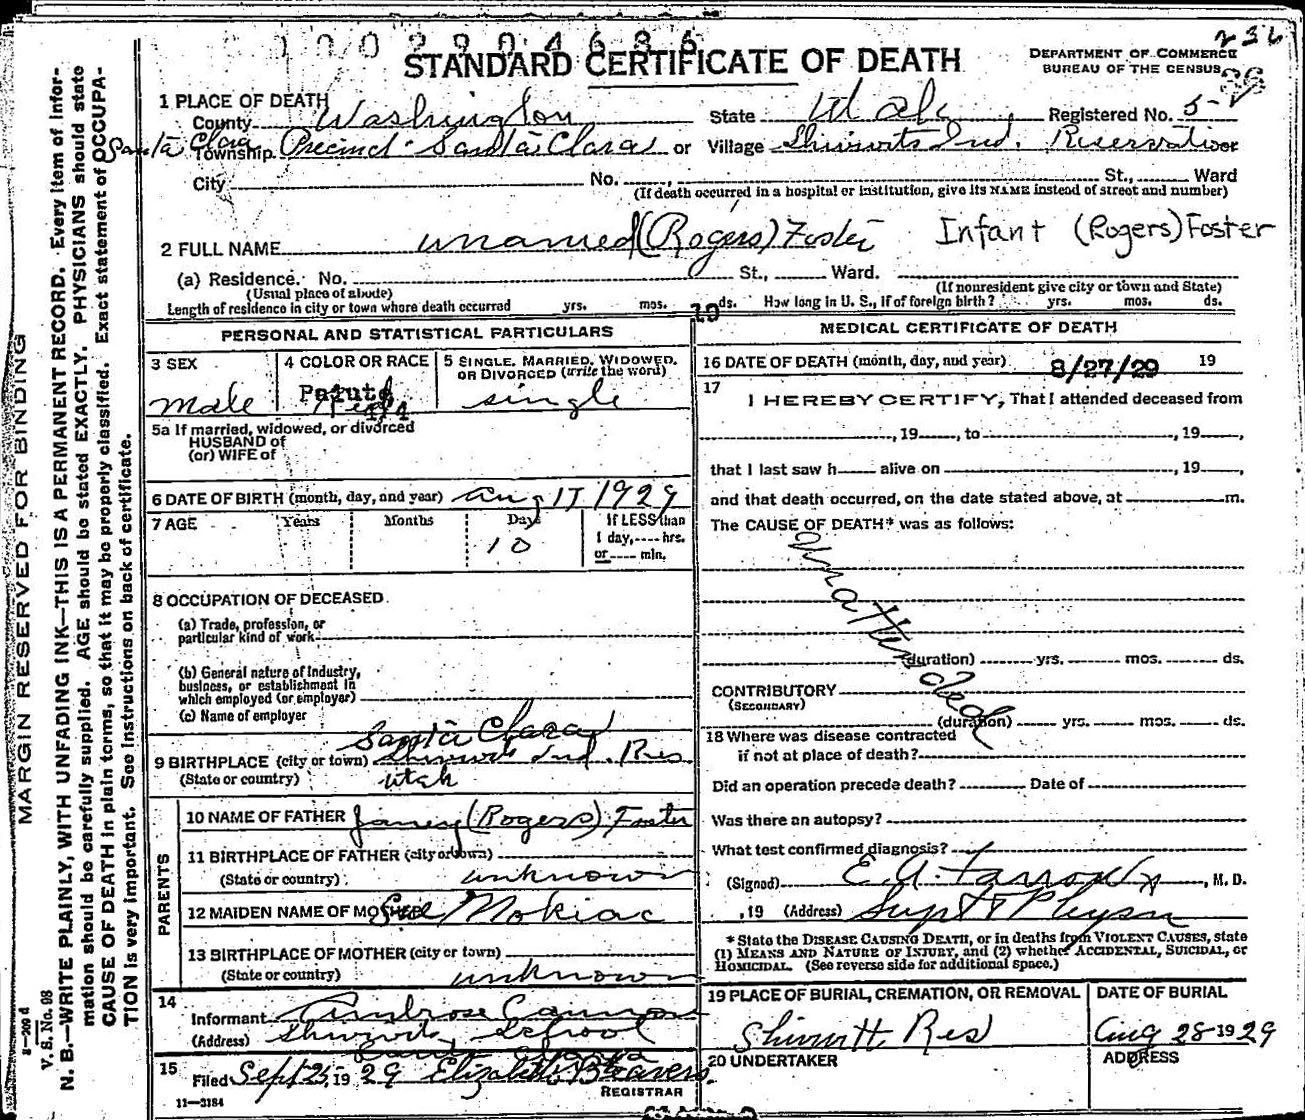 1002904686
236
STANDARD CERTIFICATE OF DEATH
DEPARTMENT OF COMMERCE
BUREAU OF THE CENSUS
1 PLACE OF DEATH
County Washington State Utah Registered No. 5
Santa Clara
Township Precinct - Santa Clara or Village Shivwits Ind. Reservation or
City No. St., Ward
(If death occurred in a hospital or institution, give its NAME instead of street and number)
2 FULL NAME unamed (Rogers) Foster Infant (Rogers) Foster
(a) Residence. No. St., Ward.
(Usual place of abode) (If nonresident give city or town and State)
Length of residence in city or town where death occurred yrs. mos. 10 ds. How long in U. S., if of foreign birth? yrs. mos. ds.
PERSONAL AND STATISTICAL PARTICULARS
3 SEX
male
4 COLOR OR RACE
Paiute
5 SINGLE, MARRIED, WIDOWED,
OR DIVORCED (write the word)
single
5a If married, widowed, or divorced
HUSBAND of
(or) WIFE of
6 DATE OF BIRTH (month, day, and year) Aug 17 1929
7 AGE Years Months Days If LESS than
10 1 day, hrs.
or min.
8 OCCUPATION OF DECEASED
(a) Trade, profession, or
particular kind of work
(b) General nature of industry,
business, or establishment in
which employed (or employer)
(c) Name of employer
Santa Clara
9 BIRTHPLACE (city or town) Shivwits Ind. Res
(State or country) Utah
PARENTS
10 NAME OF FATHER (Rogers) Foster
11 BIRTHPLACE OF FATHER (city or town)
(State or country) unknown
12 MAIDEN NAME OF MOTHER Mokiac
13 BIRTHPLACE OF MOTHER (city or town)
(State or country) unknown
14
Informant Ambrose Cannon
(Address) Shivwits School
15
Filed Sept 25, 19 29 Elizabeth Beavers
REGISTRAR
11—3184
MEDICAL CERTIFICATE OF DEATH
16 DATE OF DEATH (month, day, and year) 8/27/29 19
17
I HEREBY CERTIFY, That I attended deceased from
, 19 , to , 19 ,
that I last saw h alive on , 19 ,
and that death occurred, on the date stated above, at m.
The CAUSE OF DEATH* was as follows:
Unattended
(duration) yrs. mos. ds.
CONTRIBUTORY
(SECONDARY)
(duration) yrs. mos. ds.
18 Where was disease contracted
if not at place of death?
Did an operation precede death? Date of
Was there an autopsy?
What test confirmed diagnosis?
(Signed) E. A. Farrow , M. D.
, 19 (Address) Supt & Physn
* State the DISEASE CAUSING DEATH, or in deaths from VIOLENT CAUSES, state
(1) MEANS AND NATURE OF INJURY, and (2) whether ACCIDENTAL, SUICIDAL, or
HOMICIDAL. (See reverse side for additional space.)
19 PLACE OF BURIAL, CREMATION, OR REMOVAL
Shivwits Res
DATE OF BURIAL
Aug 28 19 29
20 UNDERTAKER
ADDRESS
MARGIN RESERVED FOR BINDING
V. S. No. 98
N. B.—WRITE PLAINLY, WITH UNFADING INK—THIS IS A PERMANENT RECORD. Every item of infor-
mation should be carefully supplied. AGE should be stated EXACTLY. PHYSICIANS should state
CAUSE OF DEATH in plain terms, so that it may be properly classified. Exact statement of OCCUPA-
TION is very important. See instructions on back of certificate.